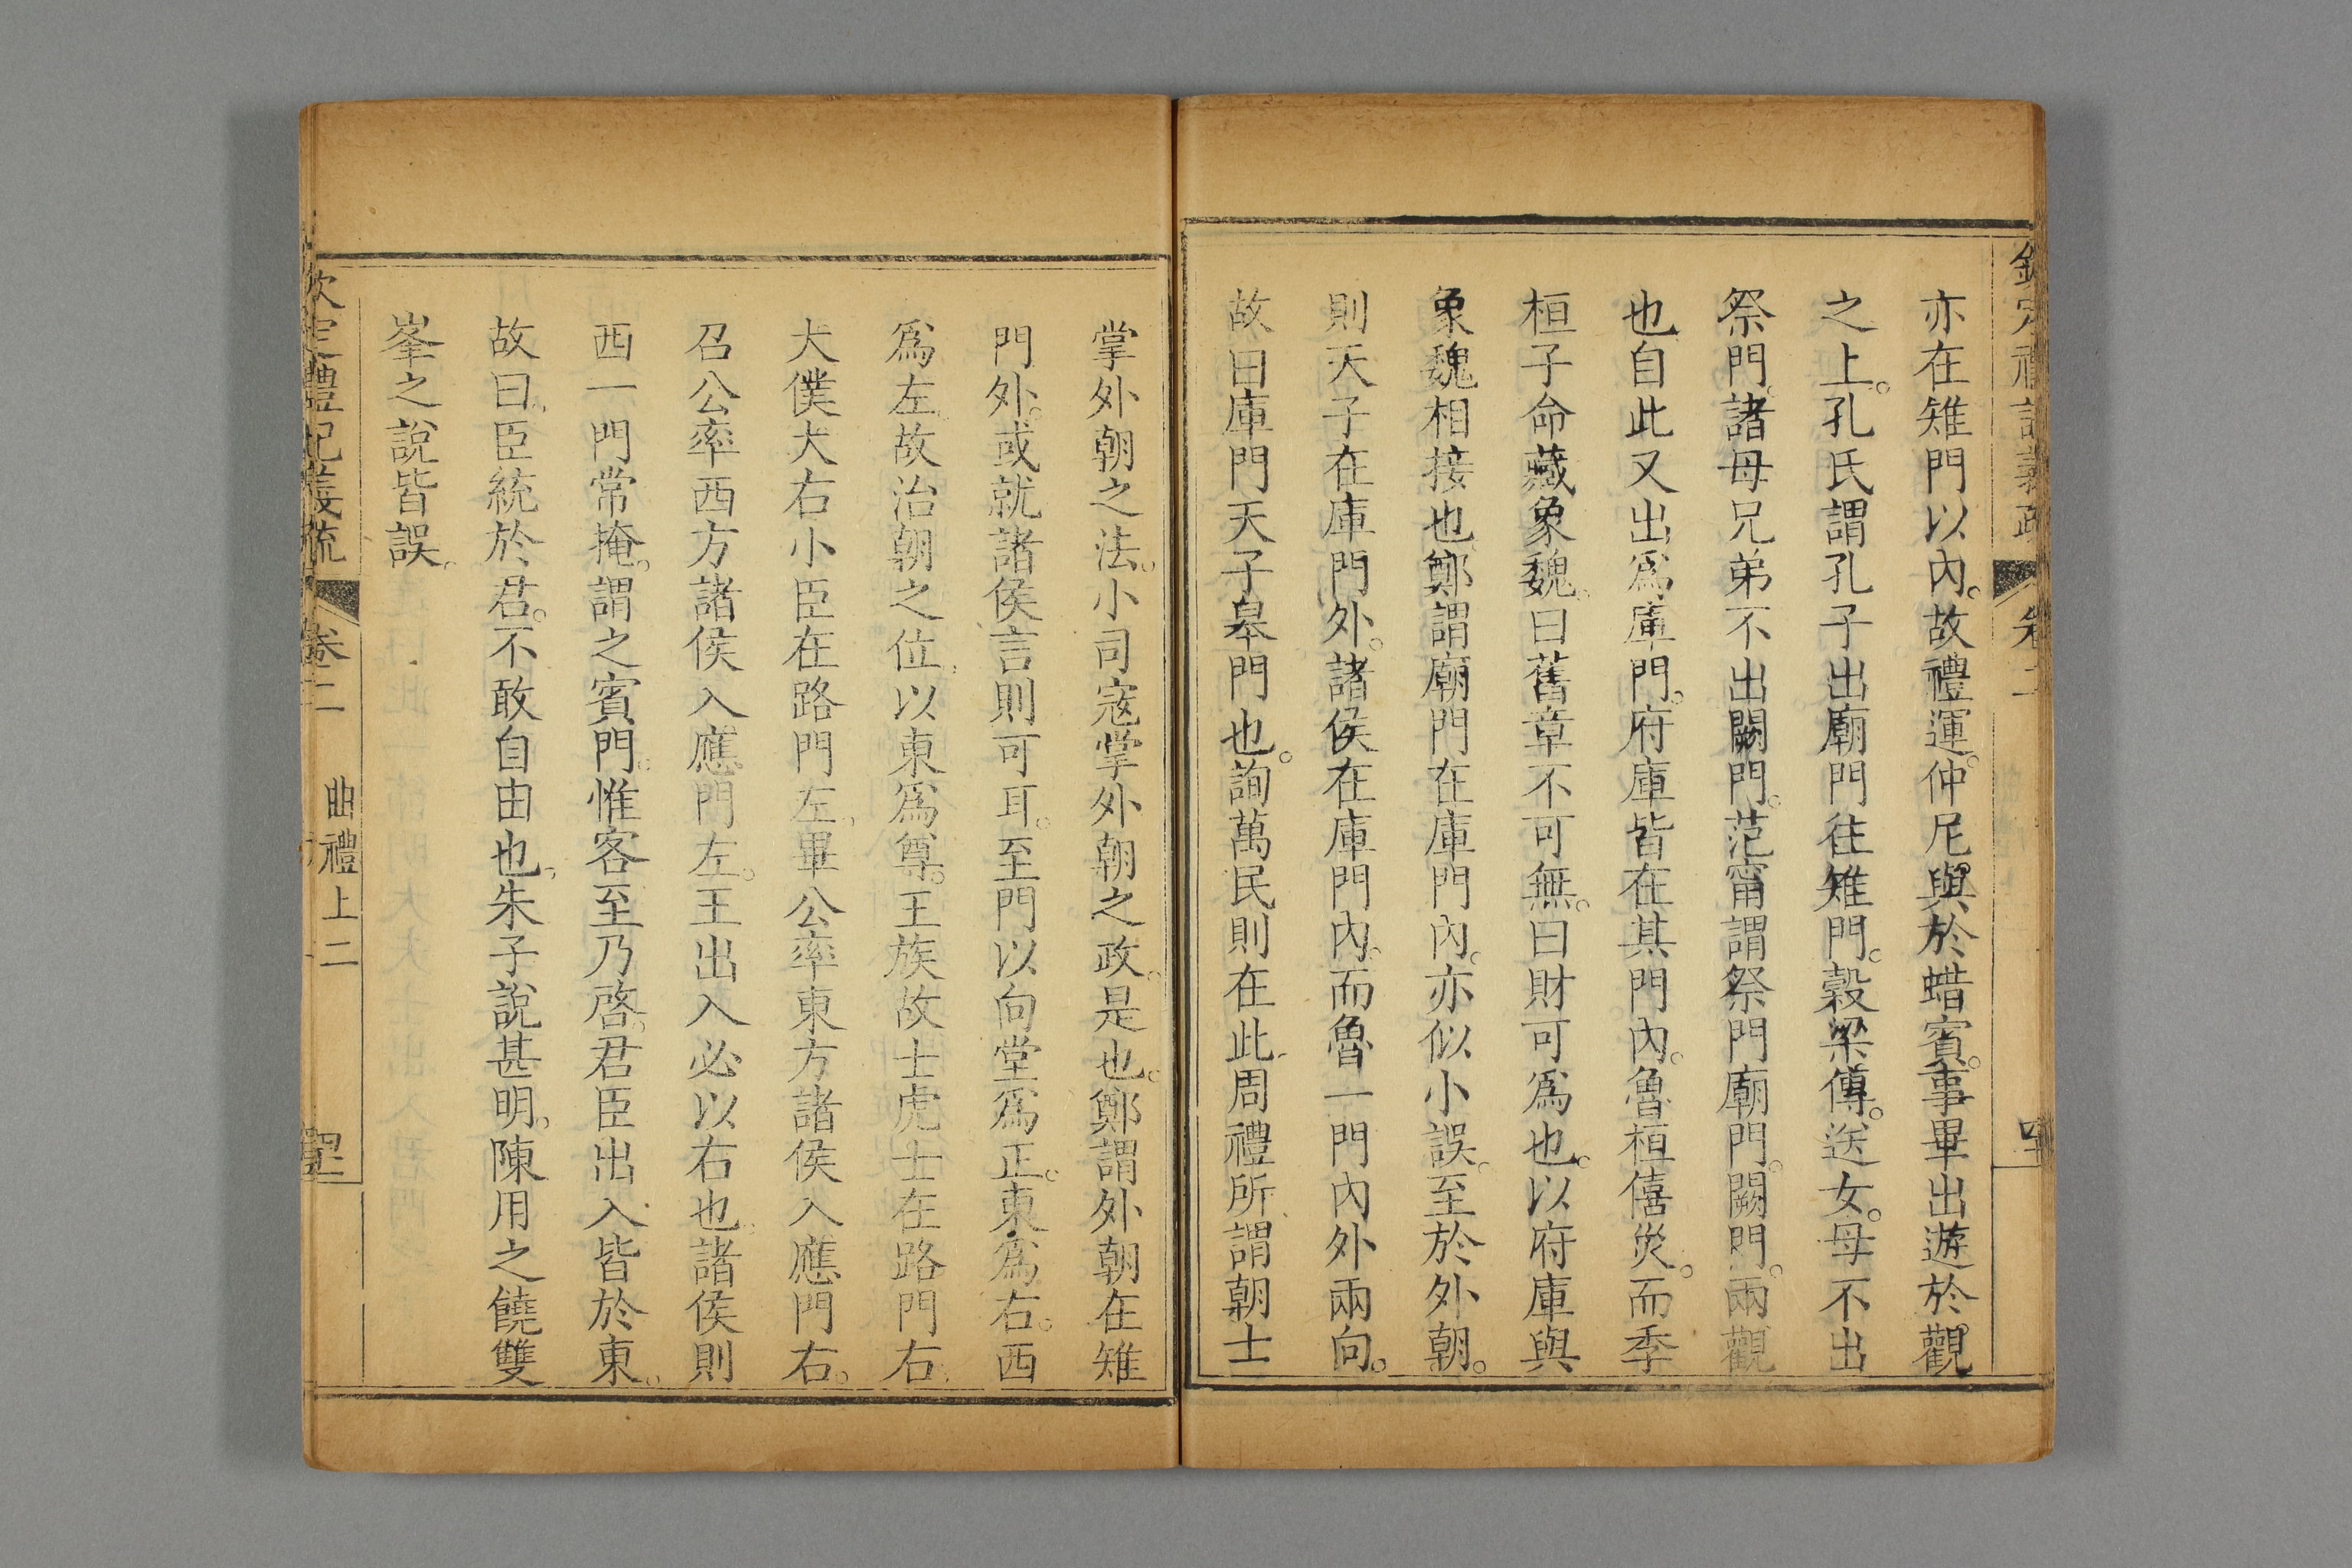 亦在雉門以內。故禮運。仲尼與於蜡賓。事畢出遊於觀
之上。孔氏謂孔子出廟門往雉門。穀梁傳。送女。母不出
祭門。諸母兄弟不出闕門。范甯謂祭門廟門。闕門。兩觀
也。自此又出爲庫門。府庫皆在其門內。魯桓僖災。而季
桓子命藏象魏。曰舊章不可無。曰財可爲也。以府庫與
象魏相接也。鄭謂廟門在庫門內。亦似小誤。至於外朝。
則天子在庫門外。諸侯在庫門內。而魯一門內外兩向。
故曰庫門天子皋門也。詢萬民則在此。周禮所謂朝士
掌外朝之法。小司寇掌外朝之政。是也。鄭謂外朝在雉
門外。或就諸侯言則可耳。至門以向堂爲正。東爲右。西
爲左。故治朝之位。以東爲尊。王族故士虎士在路門右。
大僕大右小臣在路門左。畢公率東方諸侯入應門右。
召公率西方諸侯入應門左。王出入必以右也。諸侯則
西一門常掩。謂之賓門。惟客至乃啓。君臣出入皆於東。
故曰。臣統於君。不敢自由也。朱子說甚明。陳用之饒雙
峯之說皆誤。
欽定禮記義疏 卷二 曲禮上二